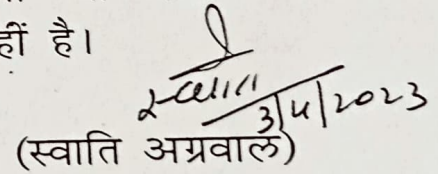 हीं है।
स्वाति
3/4/2023
(स्वाति अग्रवाल)